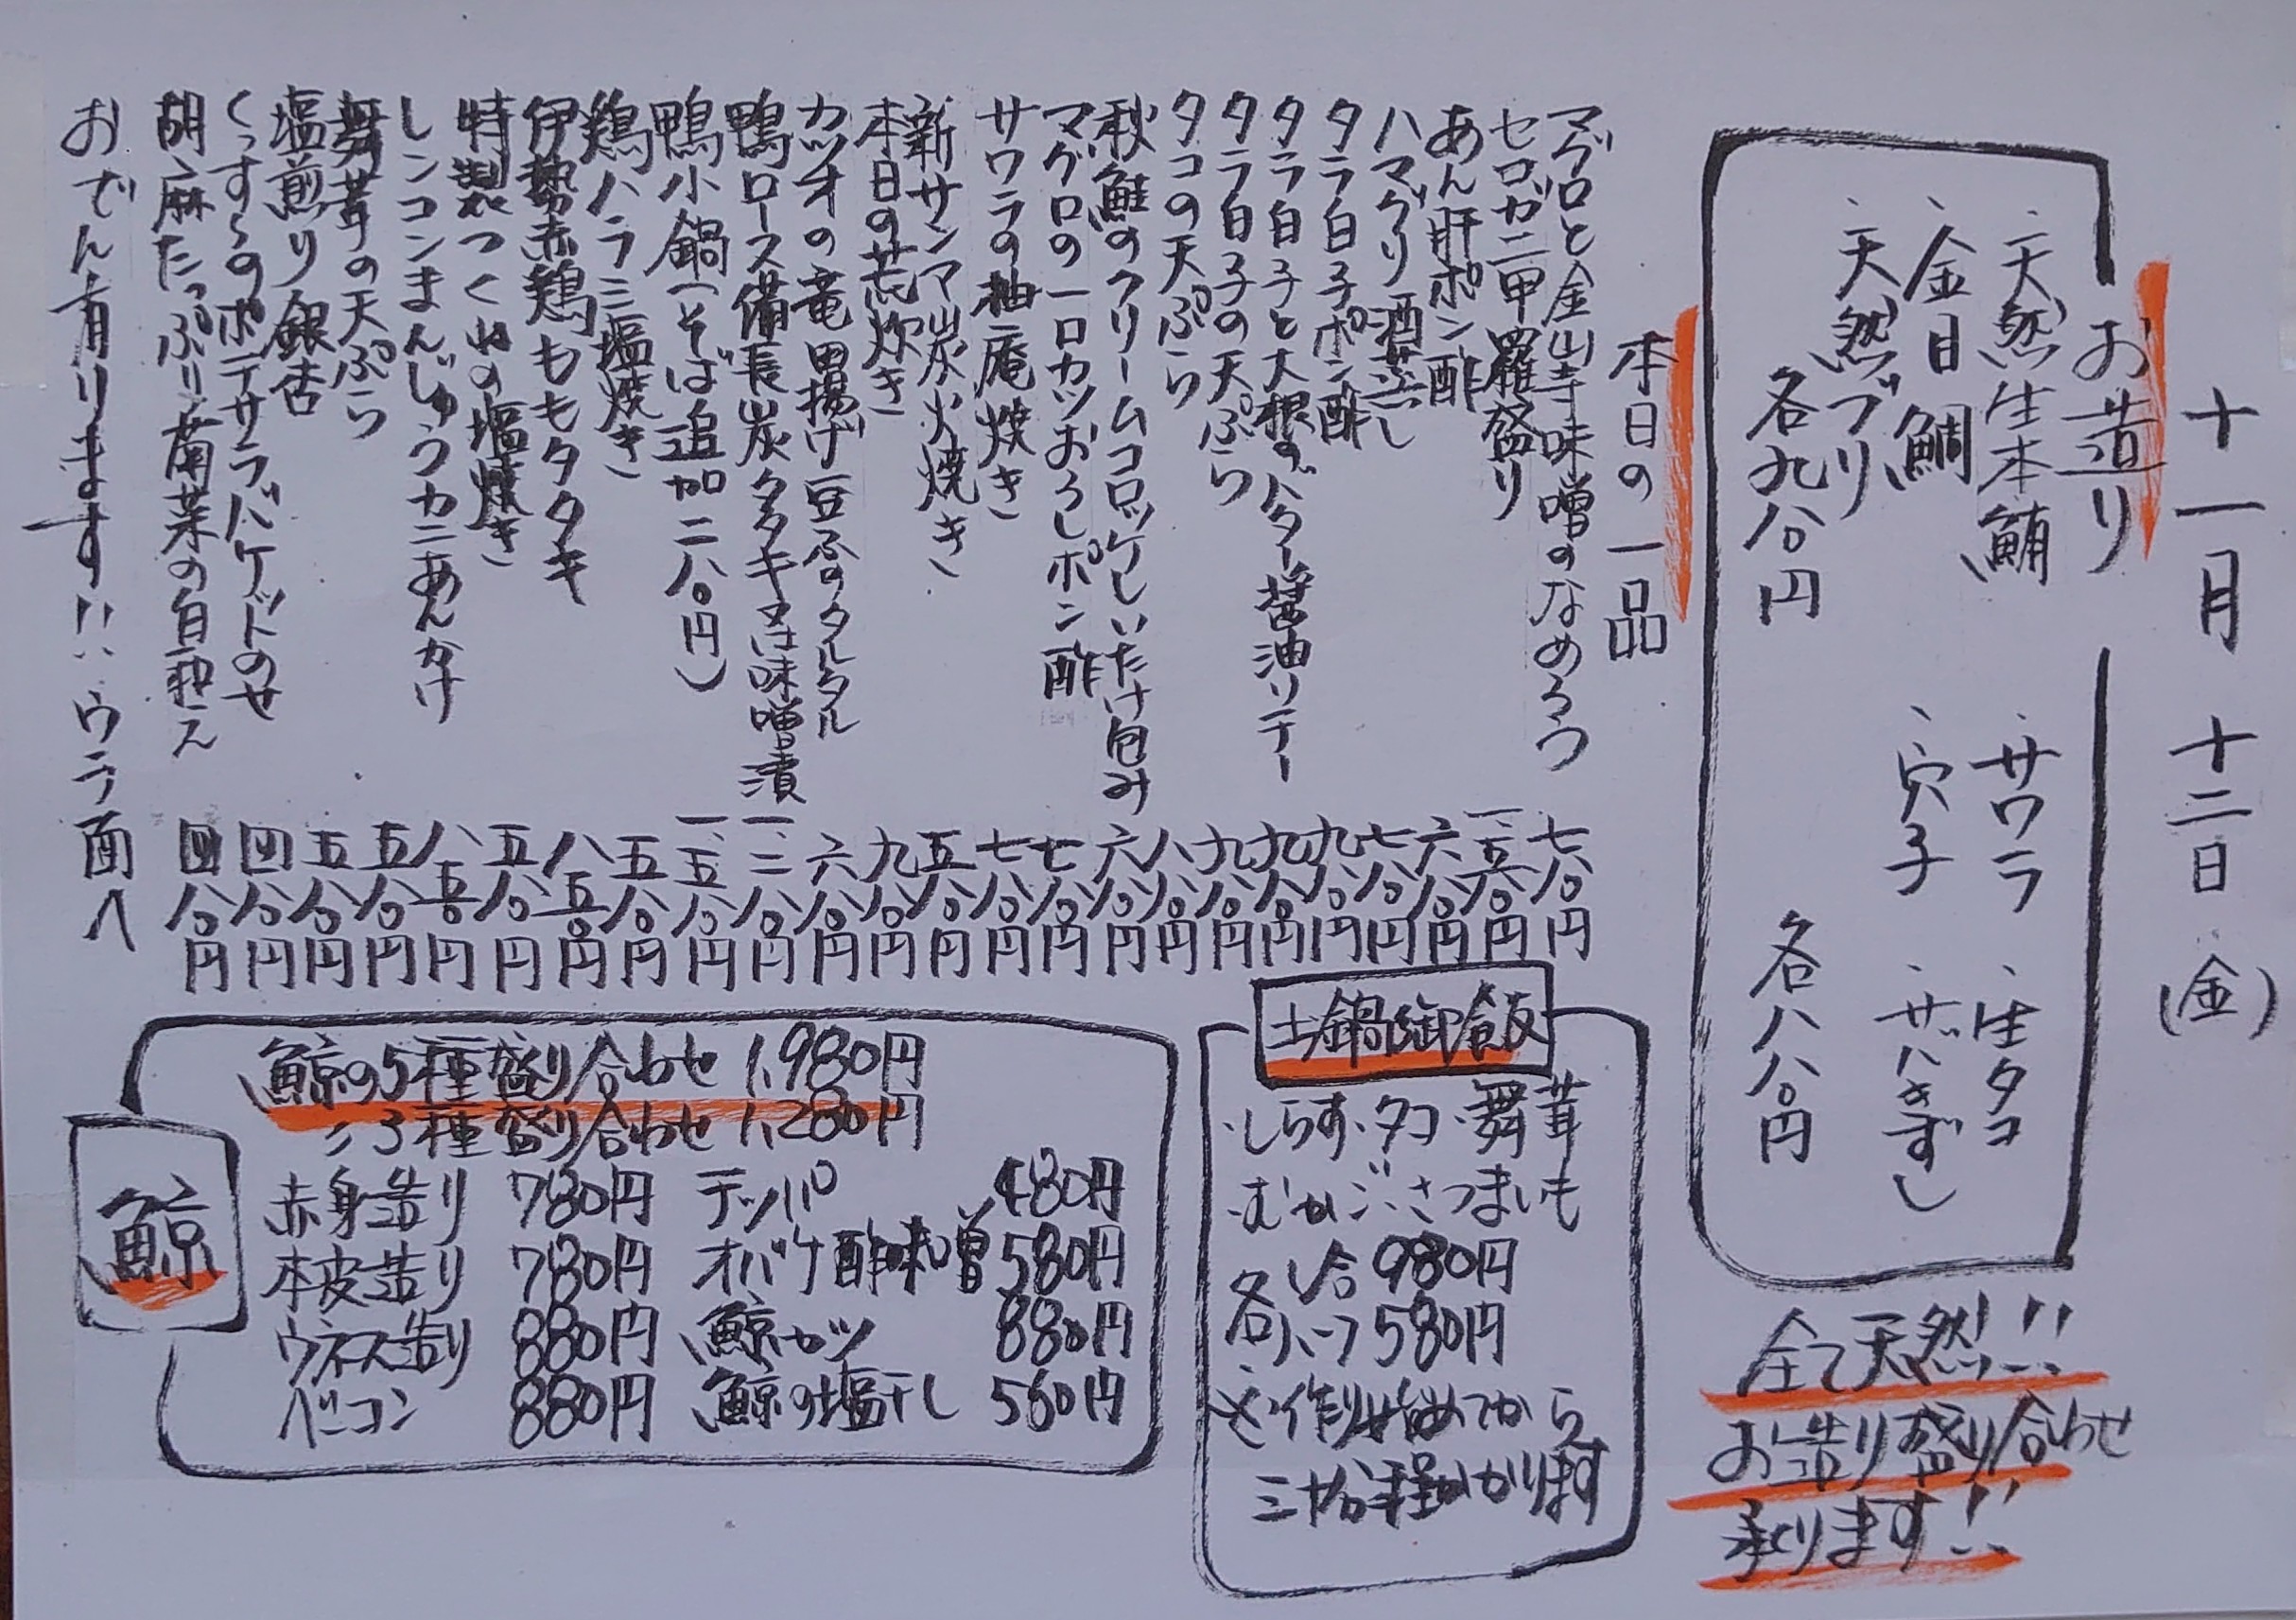 十一月 十二日(金)
お造り
、天然生本鮪 、サワラ 、生タコ
、金目鯛 、穴子 、サバきずし
、天然ブリ
各九八〇円 各八八〇円
全て天然!!
お造り盛り合わせ
承ります!!
本日の一品
マグロと金山寺味噌のなめろう 七八〇円
セコガニ甲羅盛り 一、五八〇円
あん肝ポン酢 六八〇円
ハマグリ酒蒸し 七八〇円
タラ白子ポン酢 九八〇円
タラ白子と大根のバター醤油ソテー 九八〇円
タラ白子の天ぷら 九八〇円
タコの天ぷら 八八〇円
秋鮭のクリームコロッケしいたけ包み 六八〇円
マグロの一口カツおろしポン酢 七八〇円
サワラの柚庵焼き 七八〇円
新サンマ炭火焼き 五八〇円
本日の荒炊き 九八〇円
カツオの竜田揚げ豆ふのタルタル 六八〇円
鴨ロース備長炭タタキ又は味噌漬 一、二八〇円
鴨小鍋(そば追加二八〇円) 一、五八〇円
鶏ハラミ塩焼き 五八〇円
伊勢赤鶏ももタタキ 八五〇円
特製つくねの塩焼き 五八〇円
レンコンまんじゅうカニあんかけ 八五〇円
舞茸の天ぷら 五八〇円
塩煎り銀杏 五八〇円
くっすぅのポテサラバケットのせ 四八〇円
胡麻たっぷり菊菜の白和え 四八〇円
おでん有ります!! ウラ面へ
土鍋御飯
・しらす・タコ・舞茸
・むかご・さつまいも
各一合980円
各ハーフ580円
※作り始めてから
三十分程かかります
鯨
鯨の5種盛り合わせ 1,980円
〃3種盛り合わせ 1,280円
赤身造り 780円 テッパ 480円
本皮造り 780円 オバケ酢味噌 580円
ウネス造り 880円 鯨カツ 880円
ベーコン 880円 鯨の塩干し 580円